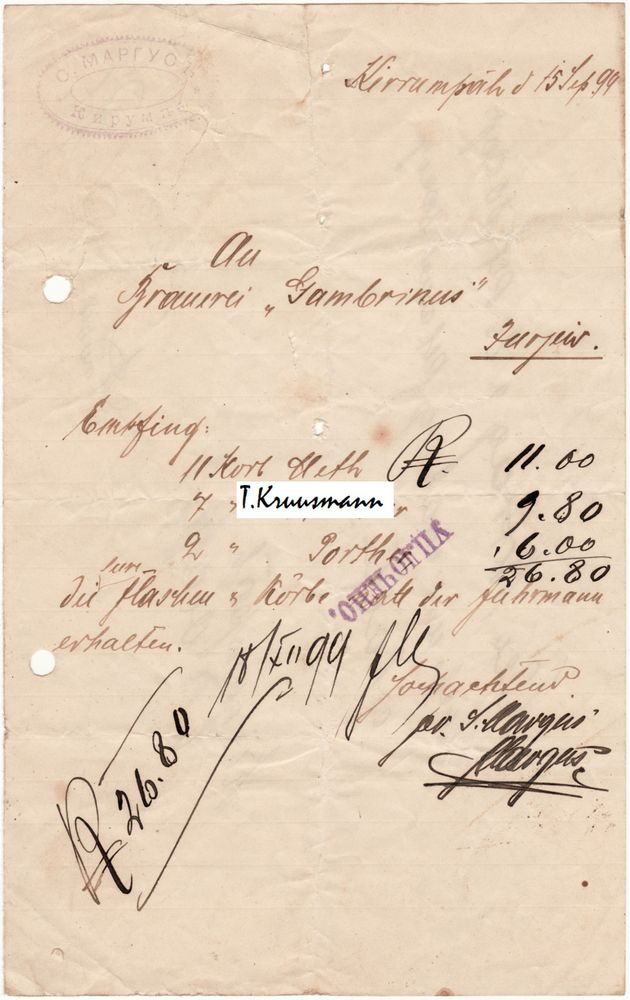 С. МАРГУС
Кирумпя
Kirrumpäh d 15 Sep. 99
An
Brauerei „Gambrinus“
Jurjew.
Empfing:
11 Korb Meth R. 11.00
7 " 9.80
T.Kruusmann
2 " Porther 6.00
26.80
die Flaschen & Körbe der Fuhrmann
erhalten.
УПЛОЧЕНО.
18/XII 99
pr. S. Margus
Margus
R 26.80